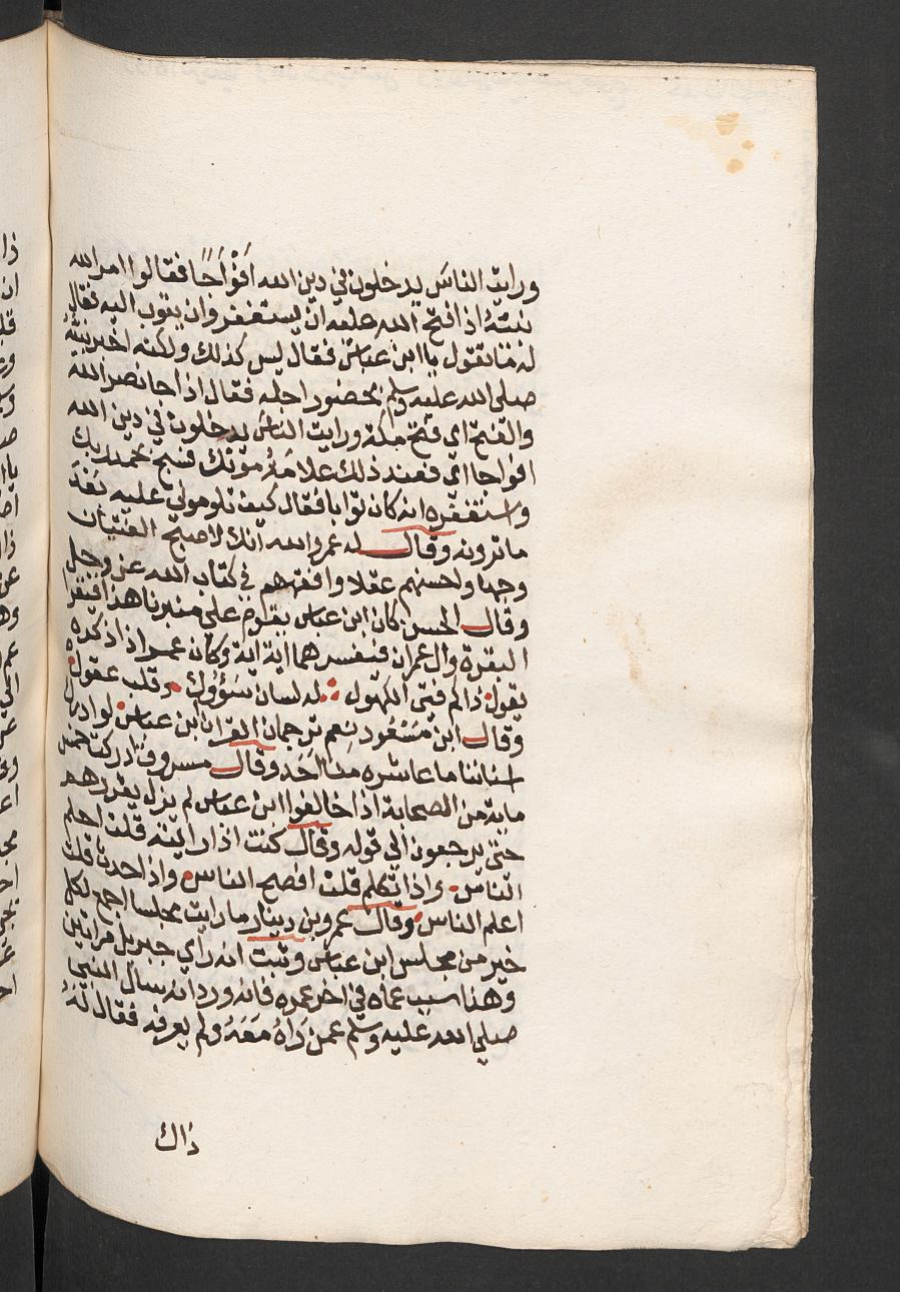 ورايت الناسَ يدخلون في دين الله اَفْوَاجًا فقالوا امر الله
نبيَّهُ اذا فتح الله عليه ان يستغفر وان يتوب اليه فقال
له ما تقول يا ابن عباس فقال ليس كذلك ولكنه اخبر نبيَّهُ
صلى الله عليه وسلم بحضور اجله فقال اذا جا نصر الله
والفتح اي فتح مكة ورايت الناسَ يدخلون في دين الله
افواجا اي فعند ذلك علامَةُ موتك فسبح بحمد ربك
واستغفره انه كان توابا فقال كيف تلوموني عليه بَعْدَ
ما ترونه وقال له عمر والله انك لاصبح الفتيان
وجها واحسنهم عقلا وافقههم في كتاب الله عز وجل
وقال الحسن كان ابن عباس يقوم على منبرنا هذا فيقرا
البقرة وال عمران فيفسرهما اية اية وكان عمر اذا ذكره
يقول ذالم فتى الكهول له لسان سَؤُولٌ وقلب عقول
وقال ابن مَسْعُود نِعم ترجمان القرآن ابن عباس لو ادرك
اسناننا ما عاشره منا احَد وقال مسروق ادركت خمس
ماية من الصحابة اذا خالفوا ابن عباس لم يزل يقررهم
حتى يرجعون الي قوله وقال كنت اذا رايته قلت اجمل
الناس واذا تكلم قلت افصح الناس واذا حدث قلت
اعلم الناس وقال عمرو بن دينار ما رايت مجلسا اجمع لكل
خير من مجلس ابن عباس وثبت انه راي جبريل مرتين
وهذا سبب عماه في اخر عمره فانه ورد انه سال النبي
صلي الله عليه وسلم عمن رَاهُ مَعَهُ ولم يعرفه فقال لَهُ
ذاك